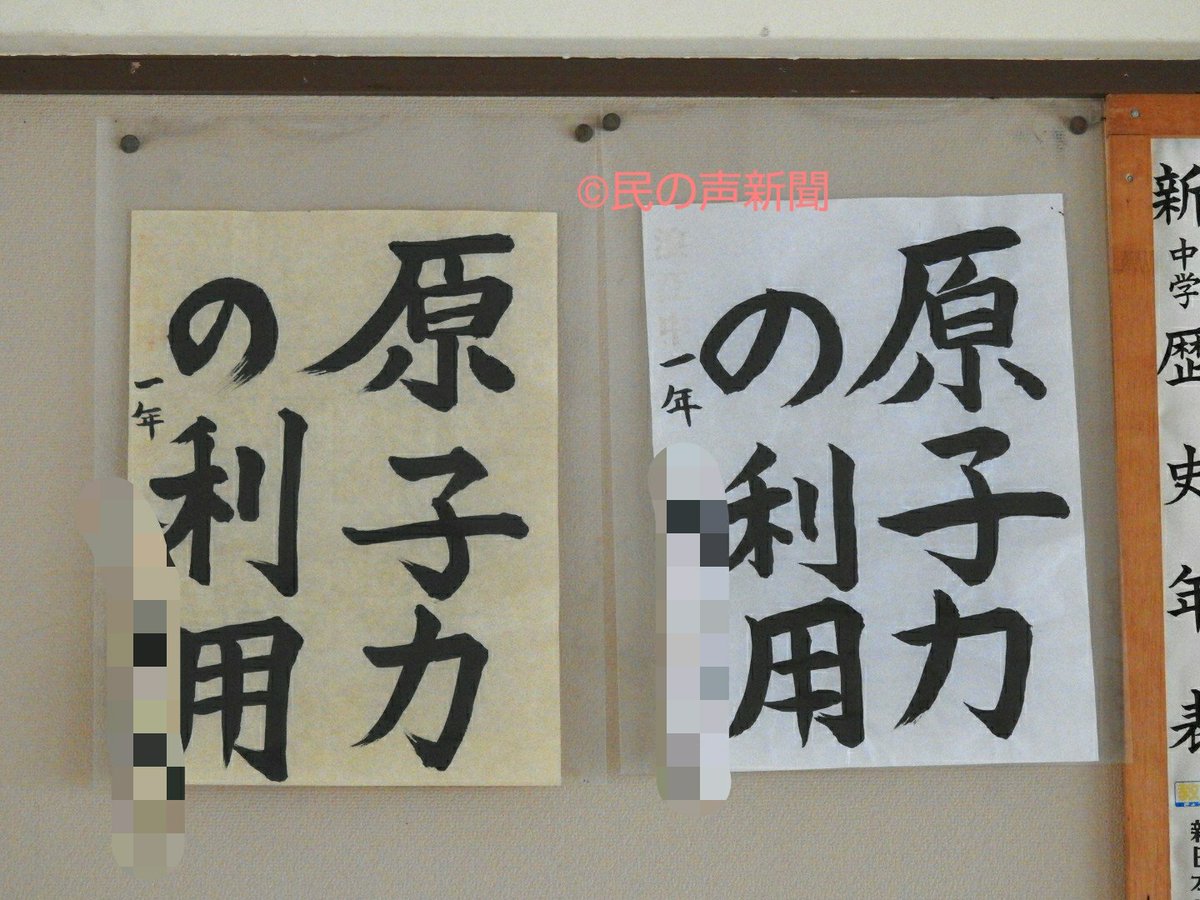 ©民の声新聞
原子力
の利用
一年
原子力
の利用
一年
新
中学
歴史年表